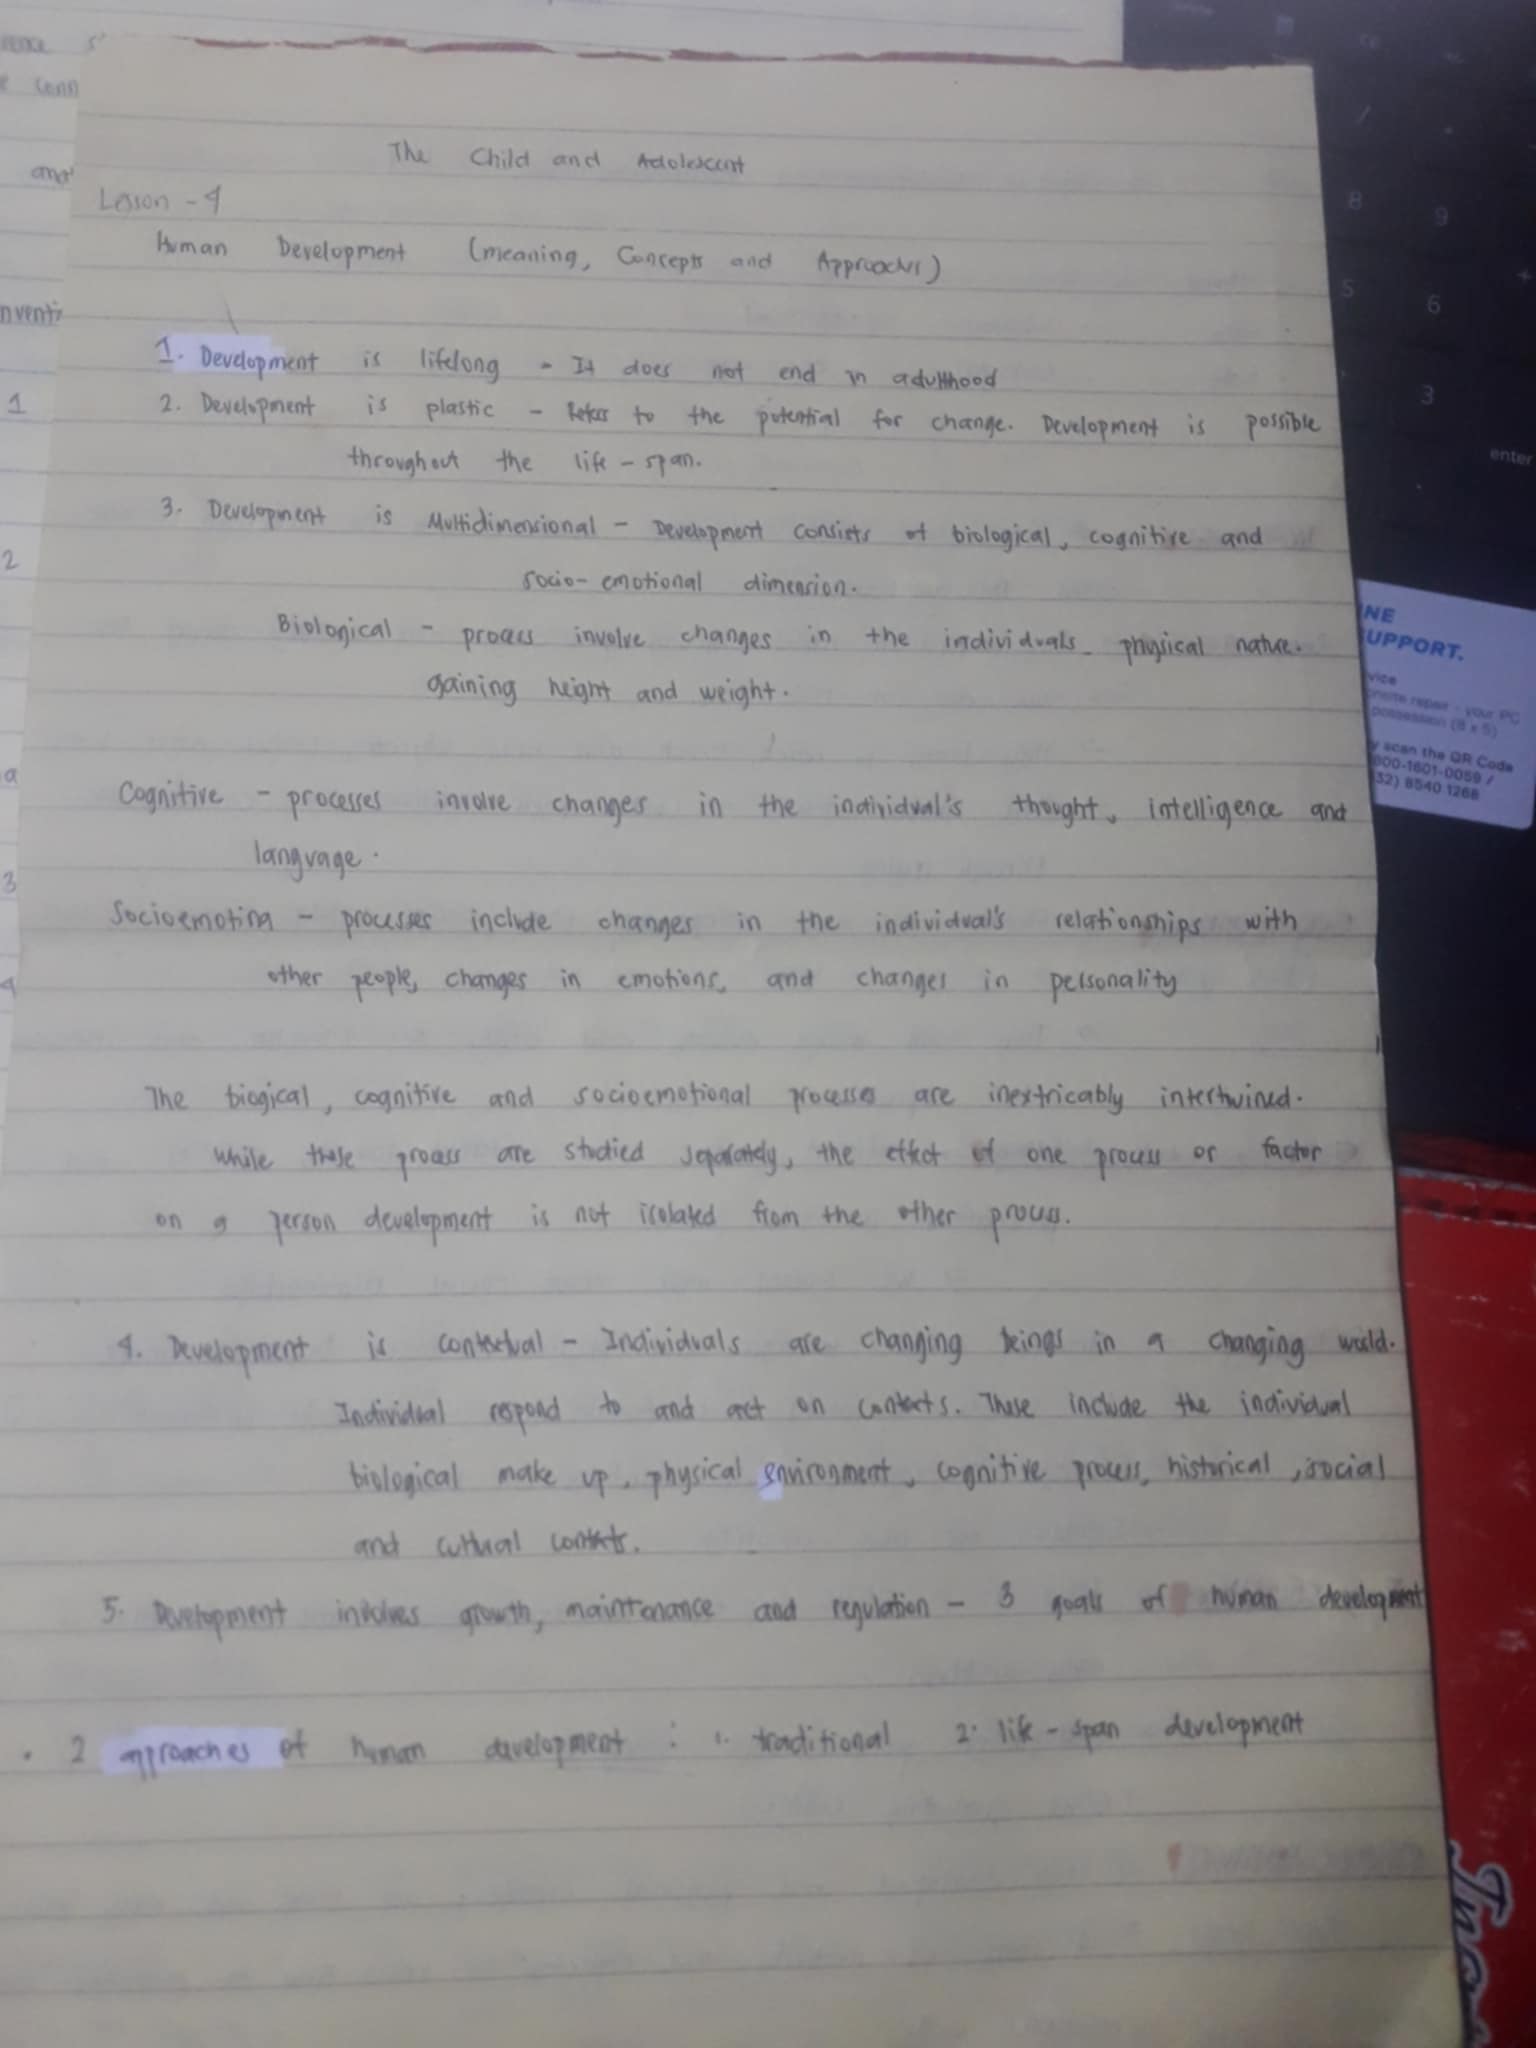 The Child and Adolescent
Lesson - 4
Human Development (meaning, Concepts and Approaches)
1. Development is lifelong - It does not end in adulthood
2. Development is plastic - Refers to the potential for change. Development is possible
throughout the life - span.
3. Development is Multidimensional - Development consists of biological, cognitive and
socio- emotional dimension.
Biological - process involve changes in the individuals physical nature.
gaining height and weight.
Cognitive - processes involve changes in the individual's thought, intelligence and
language.
Socioemotina - processes include changes in the individual's relationships with
other people, changes in emotions, and changes in personality
The biogical, cognitive and socioemotional processes are inextricably intertwined.
While these process are studied separately, the effect of one process or factor
on a person development is not isolated from the other process.
4. Development is contextual - Individuals are changing beings in a changing world.
Individual respond to and act on contexts. These include the individual
biological make up, physical environment, cognitive process, historical, social
and cultural contexts.
5. Development involves growth, maintenance and regulation - 3 goals of human development
. 2 approaches of human development : 1. traditional 2. life - span development
rence
conn
and
1
2
a
3
4
8
9
5
6
3
+
enter
NE
UPPORT.
vice
onsite repair - your PC
possession (8 x 5)
y scan the QR Code
800-1601-0059 /
32) 8540 1268